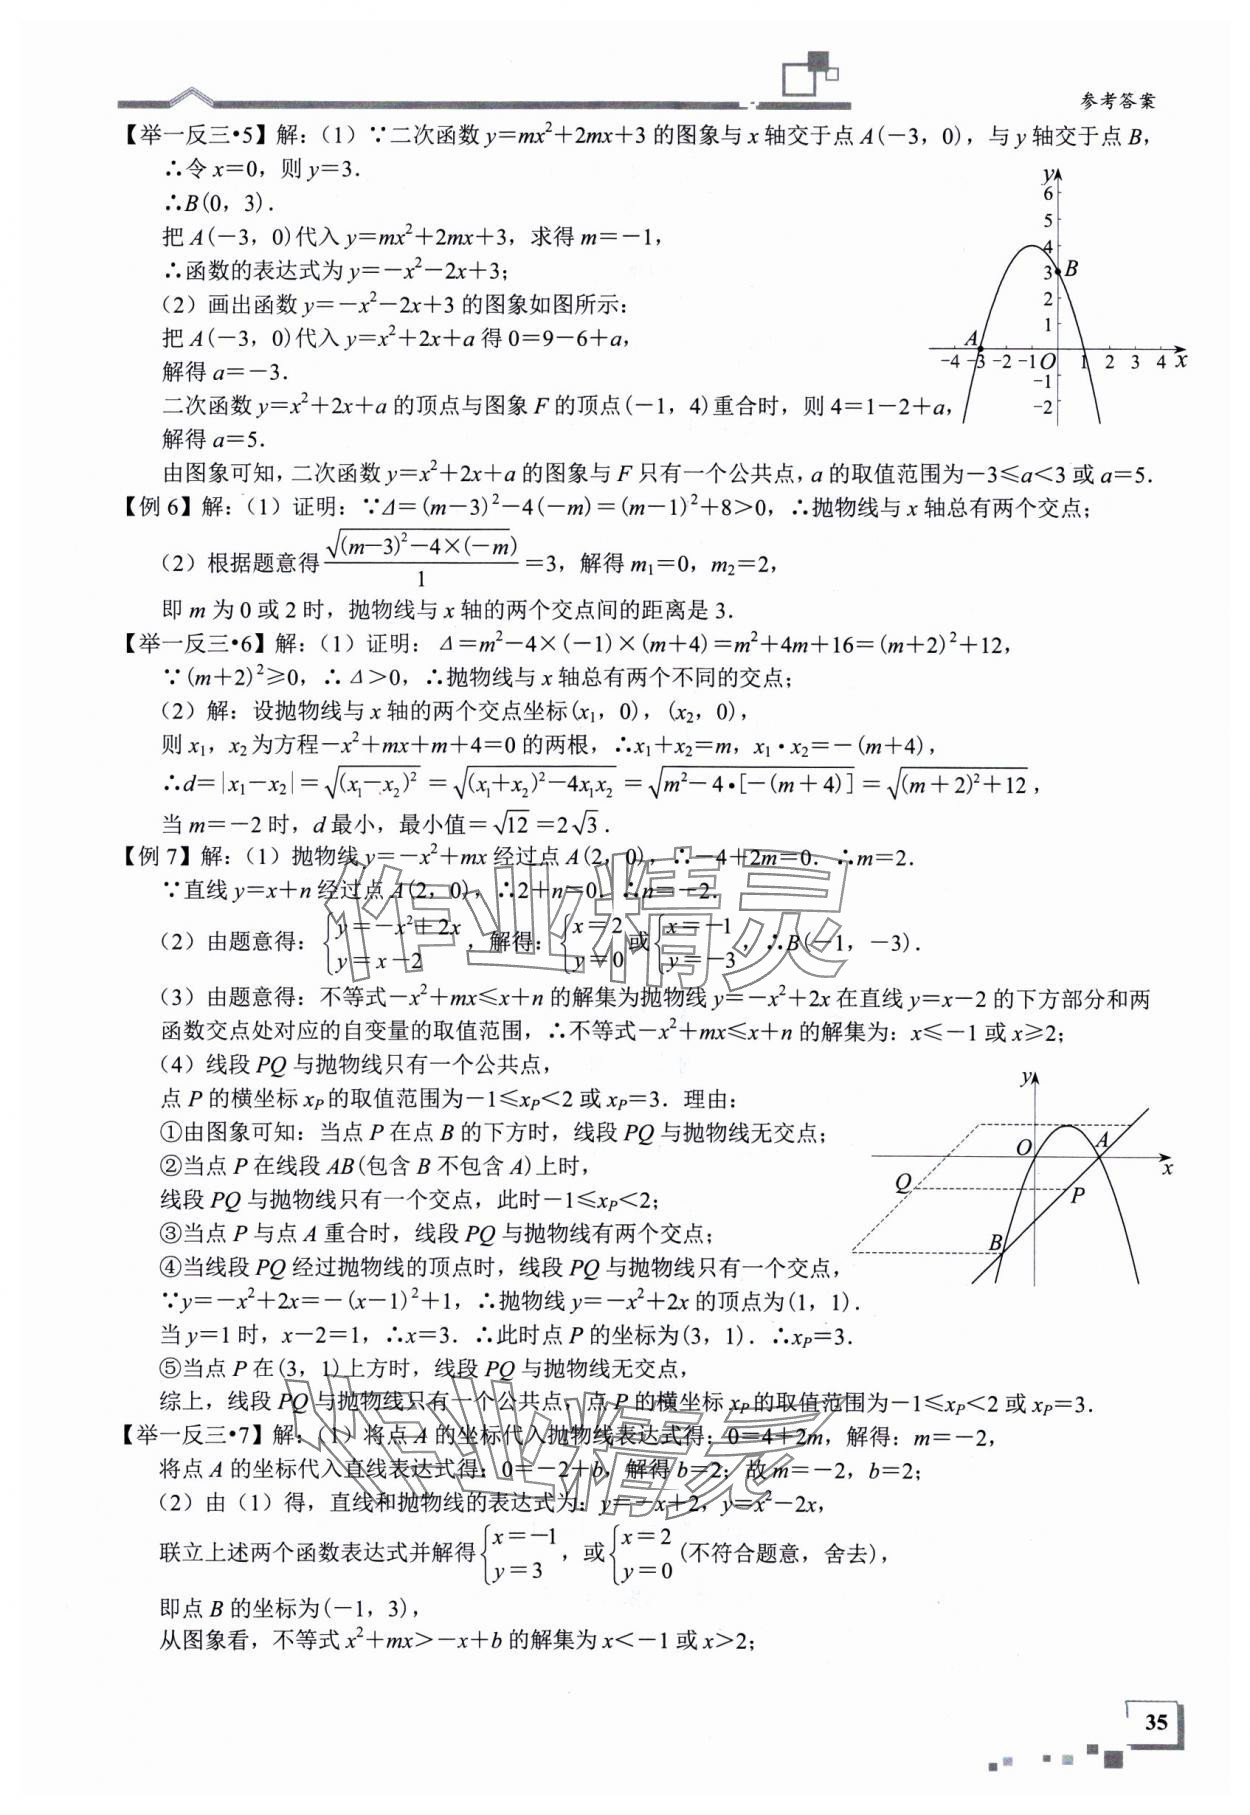 参考答案
【举一反三·5】解：(1) ∵二次函数 y=mx²+2mx+3 的图象与 x 轴交于点 A(-3，0)，与 y 轴交于点 B，
∴令 x=0，则 y=3.
∴B(0，3).
把 A(-3，0)代入 y=mx²+2mx+3，求得 m=-1，
∴函数的表达式为 y=-x²-2x+3；
(2) 画出函数 y=-x²-2x+3 的图象如图所示：
把 A(-3，0)代入 y=x²+2x+a 得 0=9-6+a，
解得 a=-3.
二次函数 y=x²+2x+a 的顶点与图象 F 的顶点(-1，4)重合时，则 4=1-2+a，
解得 a=5.
由图象可知，二次函数 y=x²+2x+a 的图象与 F 只有一个公共点，a 的取值范围为-3≤a<3 或 a=5.
y
6
5
4
3 B
2
1
A
-4 -3 -2 -1 O 1 2 3 4 x
-1
-2
【例 6】解：(1) 证明：∵Δ=(m-3)²-4(-m)=(m-1)²+8>0，∴抛物线与 x 轴总有两个交点；
(2) 根据题意得 √((m-3)²-4×(-m))/1 =3，解得 m₁=0，m₂=2，
即 m 为 0 或 2 时，抛物线与 x 轴的两个交点间的距离是 3.
【举一反三·6】解：(1) 证明：Δ=m²-4×(-1)×(m+4)=m²+4m+16=(m+2)²+12，
∵(m+2)²≥0，∴Δ>0，∴抛物线与 x 轴总有两个不同的交点；
(2) 解：设抛物线与 x 轴的两个交点坐标(x₁，0)，(x₂，0)，
则 x₁，x₂为方程-x²+mx+m+4=0 的两根，∴x₁+x₂=m，x₁·x₂=-(m+4)，
∴d=|x₁-x₂|=√((x₁-x₂)²) =√((x₁+x₂)²-4x₁x₂) =√(m²-4·[-(m+4)]) =√((m+2)²+12)，
当 m=-2 时，d 最小，最小值=√12=2√3.
【例 7】解：(1) 抛物线 y=-x²+mx 经过点 A(2，0)，∴-4+2m=0. ∴m=2.
∵直线 y=x+n 经过点 A(2，0)，∴2+n=0. ∴n=-2.
(2) 由题意得：{y=-x²+2x y=x-2，解得：{x=2 y=0 或{x=-1 y=-3，∴B(-1，-3).
(3) 由题意得：不等式-x²+mx≤x+n 的解集为抛物线 y=-x²+2x 在直线 y=x-2 的下方部分和两
函数交点处对应的自变量的取值范围，∴不等式-x²+mx≤x+n 的解集为：x≤-1 或 x≥2；
(4) 线段 PQ 与抛物线只有一个公共点，
点 P 的横坐标 xP 的取值范围为-1≤xP<2 或 xP=3. 理由：
①由图象可知：当点 P 在点 B 的下方时，线段 PQ 与抛物线无交点；
②当点 P 在线段 AB(包含 B 不包含 A)上时，
线段 PQ 与抛物线只有一个交点，此时-1≤xP<2；
③当点 P 与点 A 重合时，线段 PQ 与抛物线有两个交点；
④当线段 PQ 经过抛物线的顶点时，线段 PQ 与抛物线只有一个交点，
∵y=-x²+2x=-(x-1)²+1，∴抛物线 y=-x²+2x 的顶点为(1，1).
当 y=1 时，x-2=1，∴x=3. ∴此时点 P 的坐标为(3，1). ∴xP=3.
⑤当点 P 在(3，1)上方时，线段 PQ 与抛物线无交点，
综上，线段 PQ 与抛物线只有一个公共点，点 P 的横坐标 xP 的取值范围为-1≤xP<2 或 xP=3.
y
O A x
Q P
B
【举一反三·7】解：(1) 将点 A 的坐标代入抛物线表达式得：0=4+2m，解得：m=-2，
将点 A 的坐标代入直线表达式得：0=-2+b，解得 b=2；故 m=-2，b=2；
(2) 由 (1) 得，直线和抛物线的表达式为：y=-x+2，y=x²-2x，
联立上述两个函数表达式并解得{x=-1 y=3，或{x=2 y=0 (不符合题意，舍去)，
即点 B 的坐标为(-1，3)，
从图象看，不等式 x²+mx>-x+b 的解集为 x<-1 或 x>2；
作业精灵
作业精灵
35